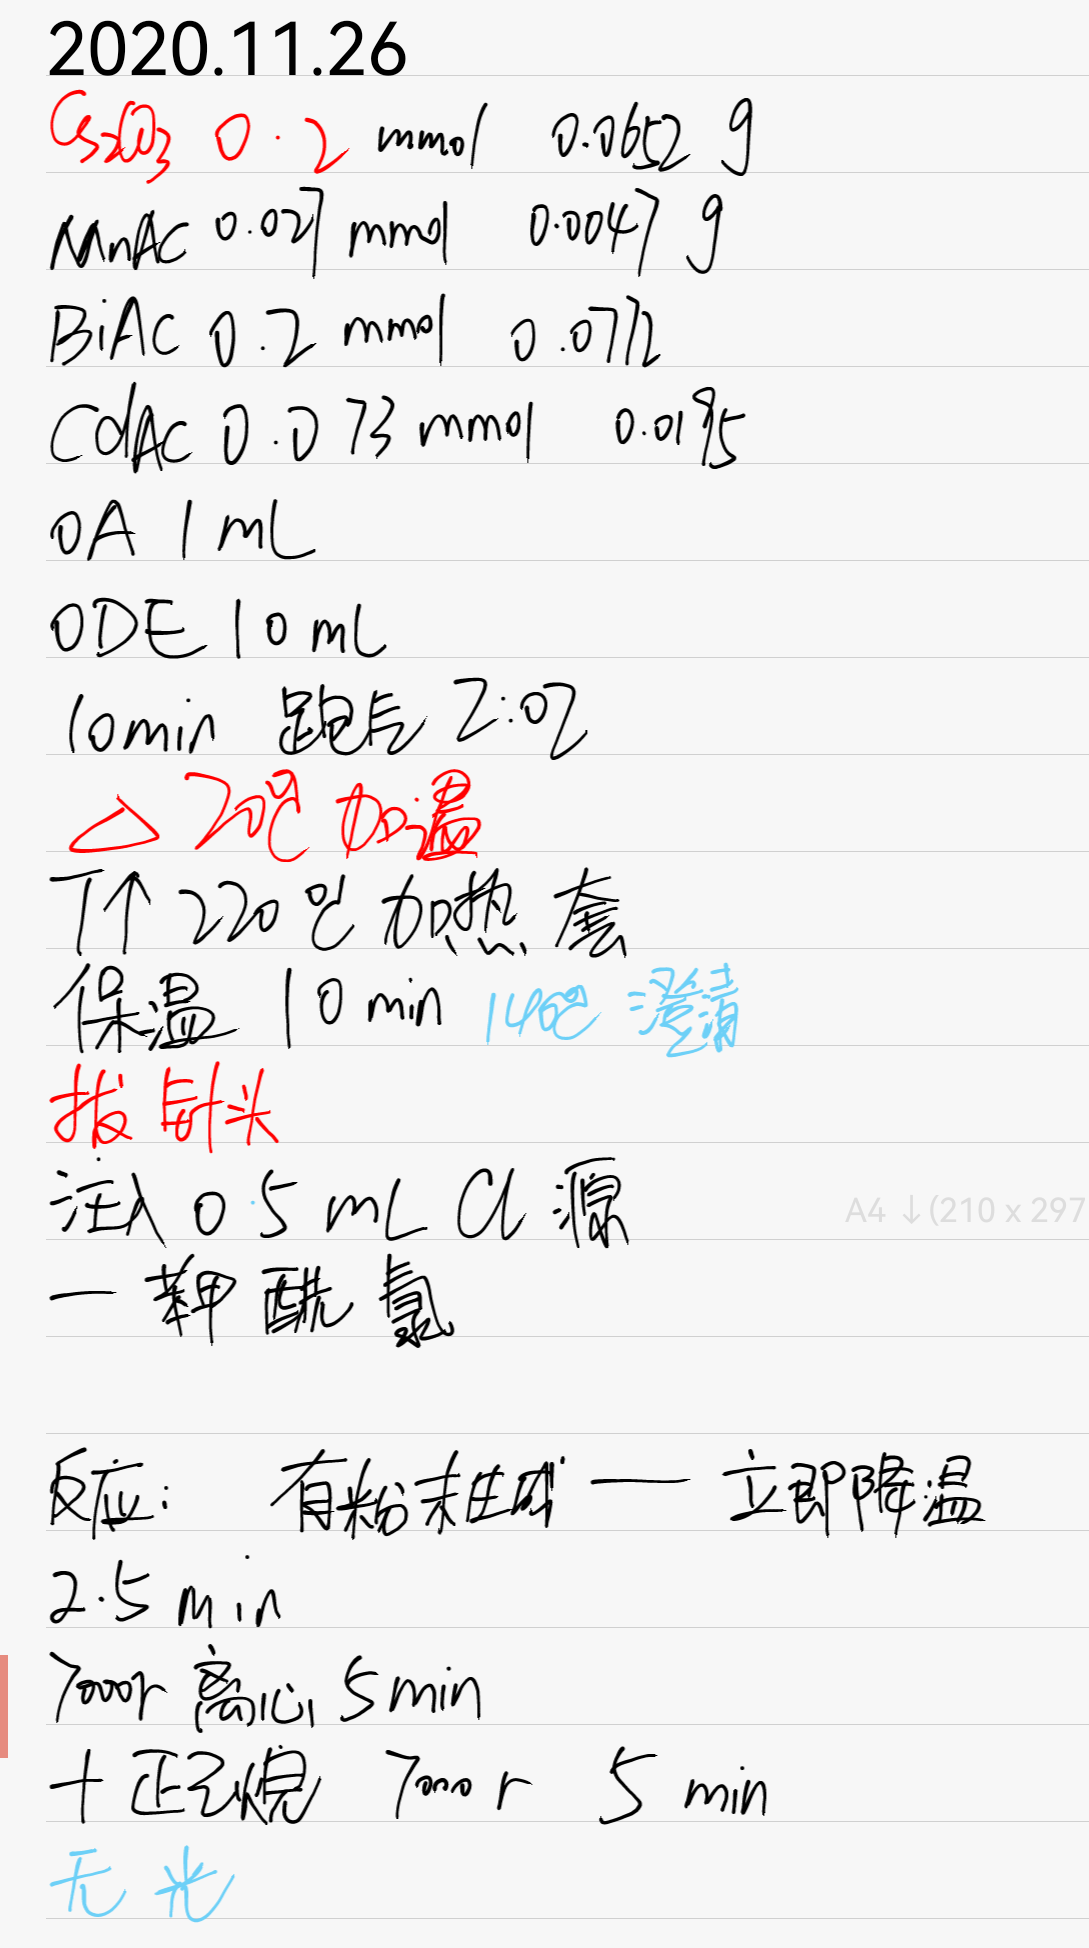 2020.11.26
Cs2CO3 0.2 mmol 0.0652 g
MnAC 0.027 mmol 0.0047 g
BiAC 0.2 mmol 0.0772
CdAC 0.073 mmol 0.0195
OA 1 mL
ODE 10 mL
10min 跑气 2:02
△ 20℃ 加温
T↑ 220℃ 加热套
保温 10 min 140℃ 澄清
拔针头
注入 0.5 mL Cl 源
一 苯甲酰氯
A4 ↓(210 x 297
反应: 有粉末生成 — 立即降温
2.5 min
7000r 离心 5 min
+ 正己烷 7000 r 5 min
无光